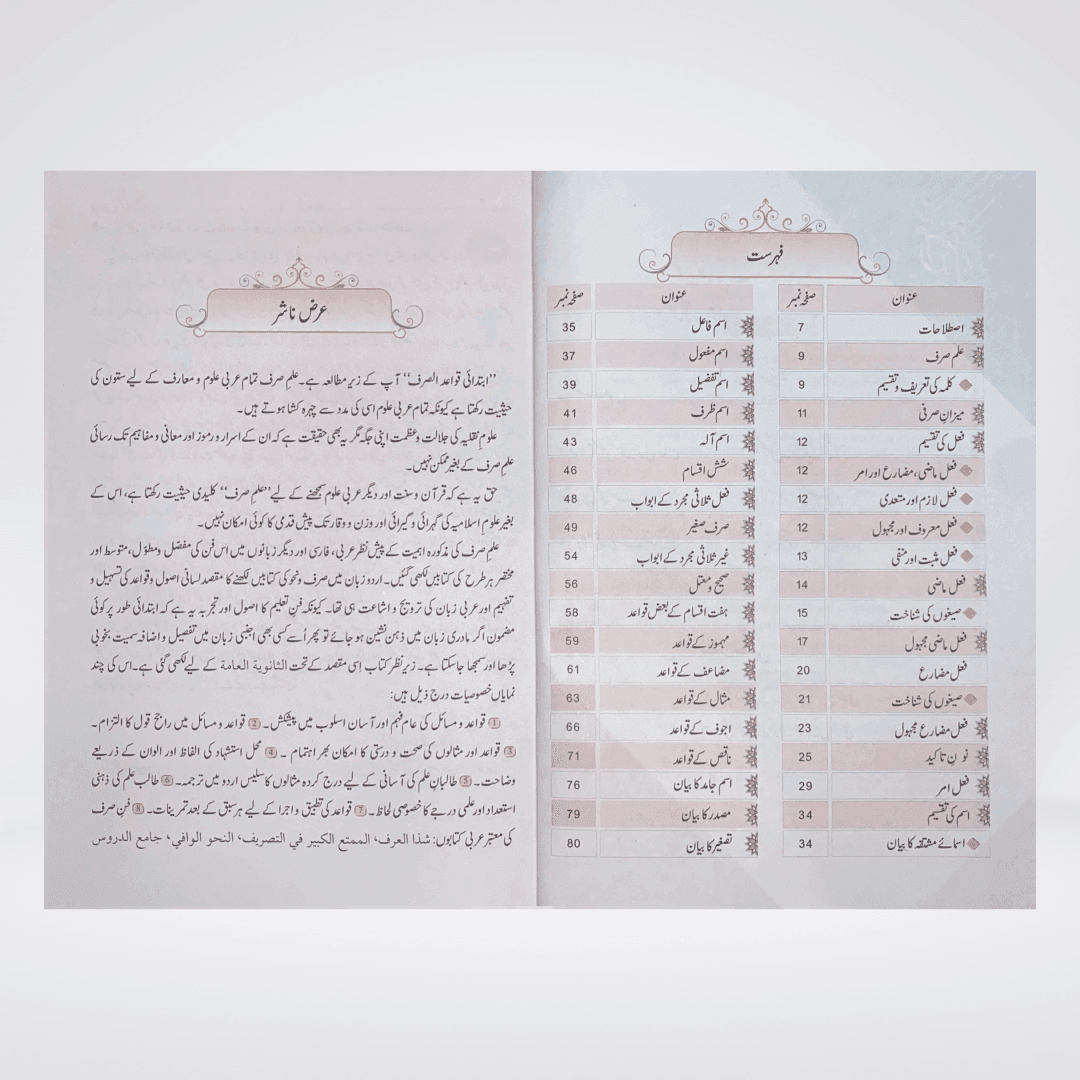 فہرست
عنوان صفحہ نمبر
اصطلاحات 7
علم صرف 9
کلمہ کی تعریف و تقسیم 9
میزانِ صرفی 11
فعل کی تقسیم 12
فعل ماضی، مضارع اور امر 12
فعل لازم اور متعدی 12
فعل معروف اور مجہول 12
فعل مثبت اور منفی 13
فعل ماضی 14
صیغوں کی شناخت 15
فعل ماضی مجہول 17
فعل مضارع 20
صیغوں کی شناخت 21
فعل مضارع مجہول 23
نونِ تاکید 25
فعل امر 29
اسم کی تقسیم 34
اسمائے مشتقہ کا بیان 34
عنوان صفحہ نمبر
اسم فاعل 35
اسم مفعول 37
اسم تفضیل 39
اسم ظرف 41
اسم آلہ 43
شش اقسام 46
فعل ثلاثی مجرد کے ابواب 48
صرف صغیر 49
غیر ثلاثی مجرد کے ابواب 54
صحیح و معتل 56
ہفت اقسام کے بعض قواعد 58
مہموز کے قواعد 59
مضاعف کے قواعد 61
مثال کے قواعد 63
اجوف کے قواعد 66
ناقص کے قواعد 71
اسم جامد کا بیان 76
مصدر کا بیان 79
تصغیر کا بیان 80
عرض ناشر
’’ابتدائی قواعد الصرف‘‘ آپ کے زیر مطالعہ ہے۔ علمِ صرف تمام عربی علوم و معارف کے لیے ستون کی
حیثیت رکھتا ہے کیونکہ تمام عربی علوم اسی کی مدد سے چہرہ کشا ہوتے ہیں۔
علومِ نقلیہ کی جلالت و عظمت اپنی جگہ مگر یہ بھی حقیقت ہے کہ ان کے اسرار و رموز اور معانی و مفاہیم تک رسائی
علمِ صرف کے بغیر ممکن نہیں۔
حق یہ ہے کہ قرآن و سنت اور دیگر عربی علوم سمجھنے کے لیے ’’علمِ صرف‘‘ کلیدی حیثیت رکھتا ہے، اس کے
بغیر علومِ اسلامیہ کی گہرائی و گیرائی اور وزن و وقار تک پیش قدمی کا کوئی امکان نہیں۔
علمِ صرف کی مذکورہ اہمیت کے پیش نظر عربی، فارسی اور دیگر زبانوں میں اس فن کی مفصل و مطوّل، متوسط اور
مختصر ہر طرح کی کتابیں لکھی گئیں۔ اردو زبان میں صرف و نحو کی کتابیں لکھنے کا مقصد لسانی اصول و قواعد کی تسہیل و
تفہیم اور عربی زبان کی ترویج و اشاعت ہی تھا۔ کیونکہ فنِ تعلیم کا اصول اور تجربہ یہ ہے کہ ابتدائی طور پر کوئی
مضمون اگر مادری زبان میں ذہن نشین ہو جائے تو پھر اُسے کسی بھی اجنبی زبان میں تفصیل و اضافہ سمیت بخوبی
پڑھا اور سمجھا جا سکتا ہے۔ زیر نظر کتاب اِسی مقصد کے تحت الثانویة العامة کے لیے لکھی گئی ہے۔ اس کی چند
نمایاں خصوصیات درج ذیل ہیں:
① قواعد و مسائل کی عام فہم اور آسان اسلوب میں پیشکش۔ ② قواعد و مسائل میں راجح قول کا التزام۔
③ قواعد اور مثالوں کی صحت و درستی کا امکان بھر اہتمام ۔ ④ محل استشہاد کی الفاظ اور الوان کے ذریعے
وضاحت۔ ⑤ طالبانِ علم کی آسانی کے لیے درج کردہ مثالوں کا سلیس اردو میں ترجمہ۔ ⑥ طالب علم کی ذہنی
استعداد اور علمی درجے کا خصوصی لحاظ۔ ⑦ قواعد کی تطبیق و اجرا کے لیے ہر سبق کے بعد تمرینات۔ ⑧ فنِ صرف
کی معتبر عربی کتابوں: شذا العرف، الممتع الكبير في التصريف، النحو الوافي، جامع الدروس